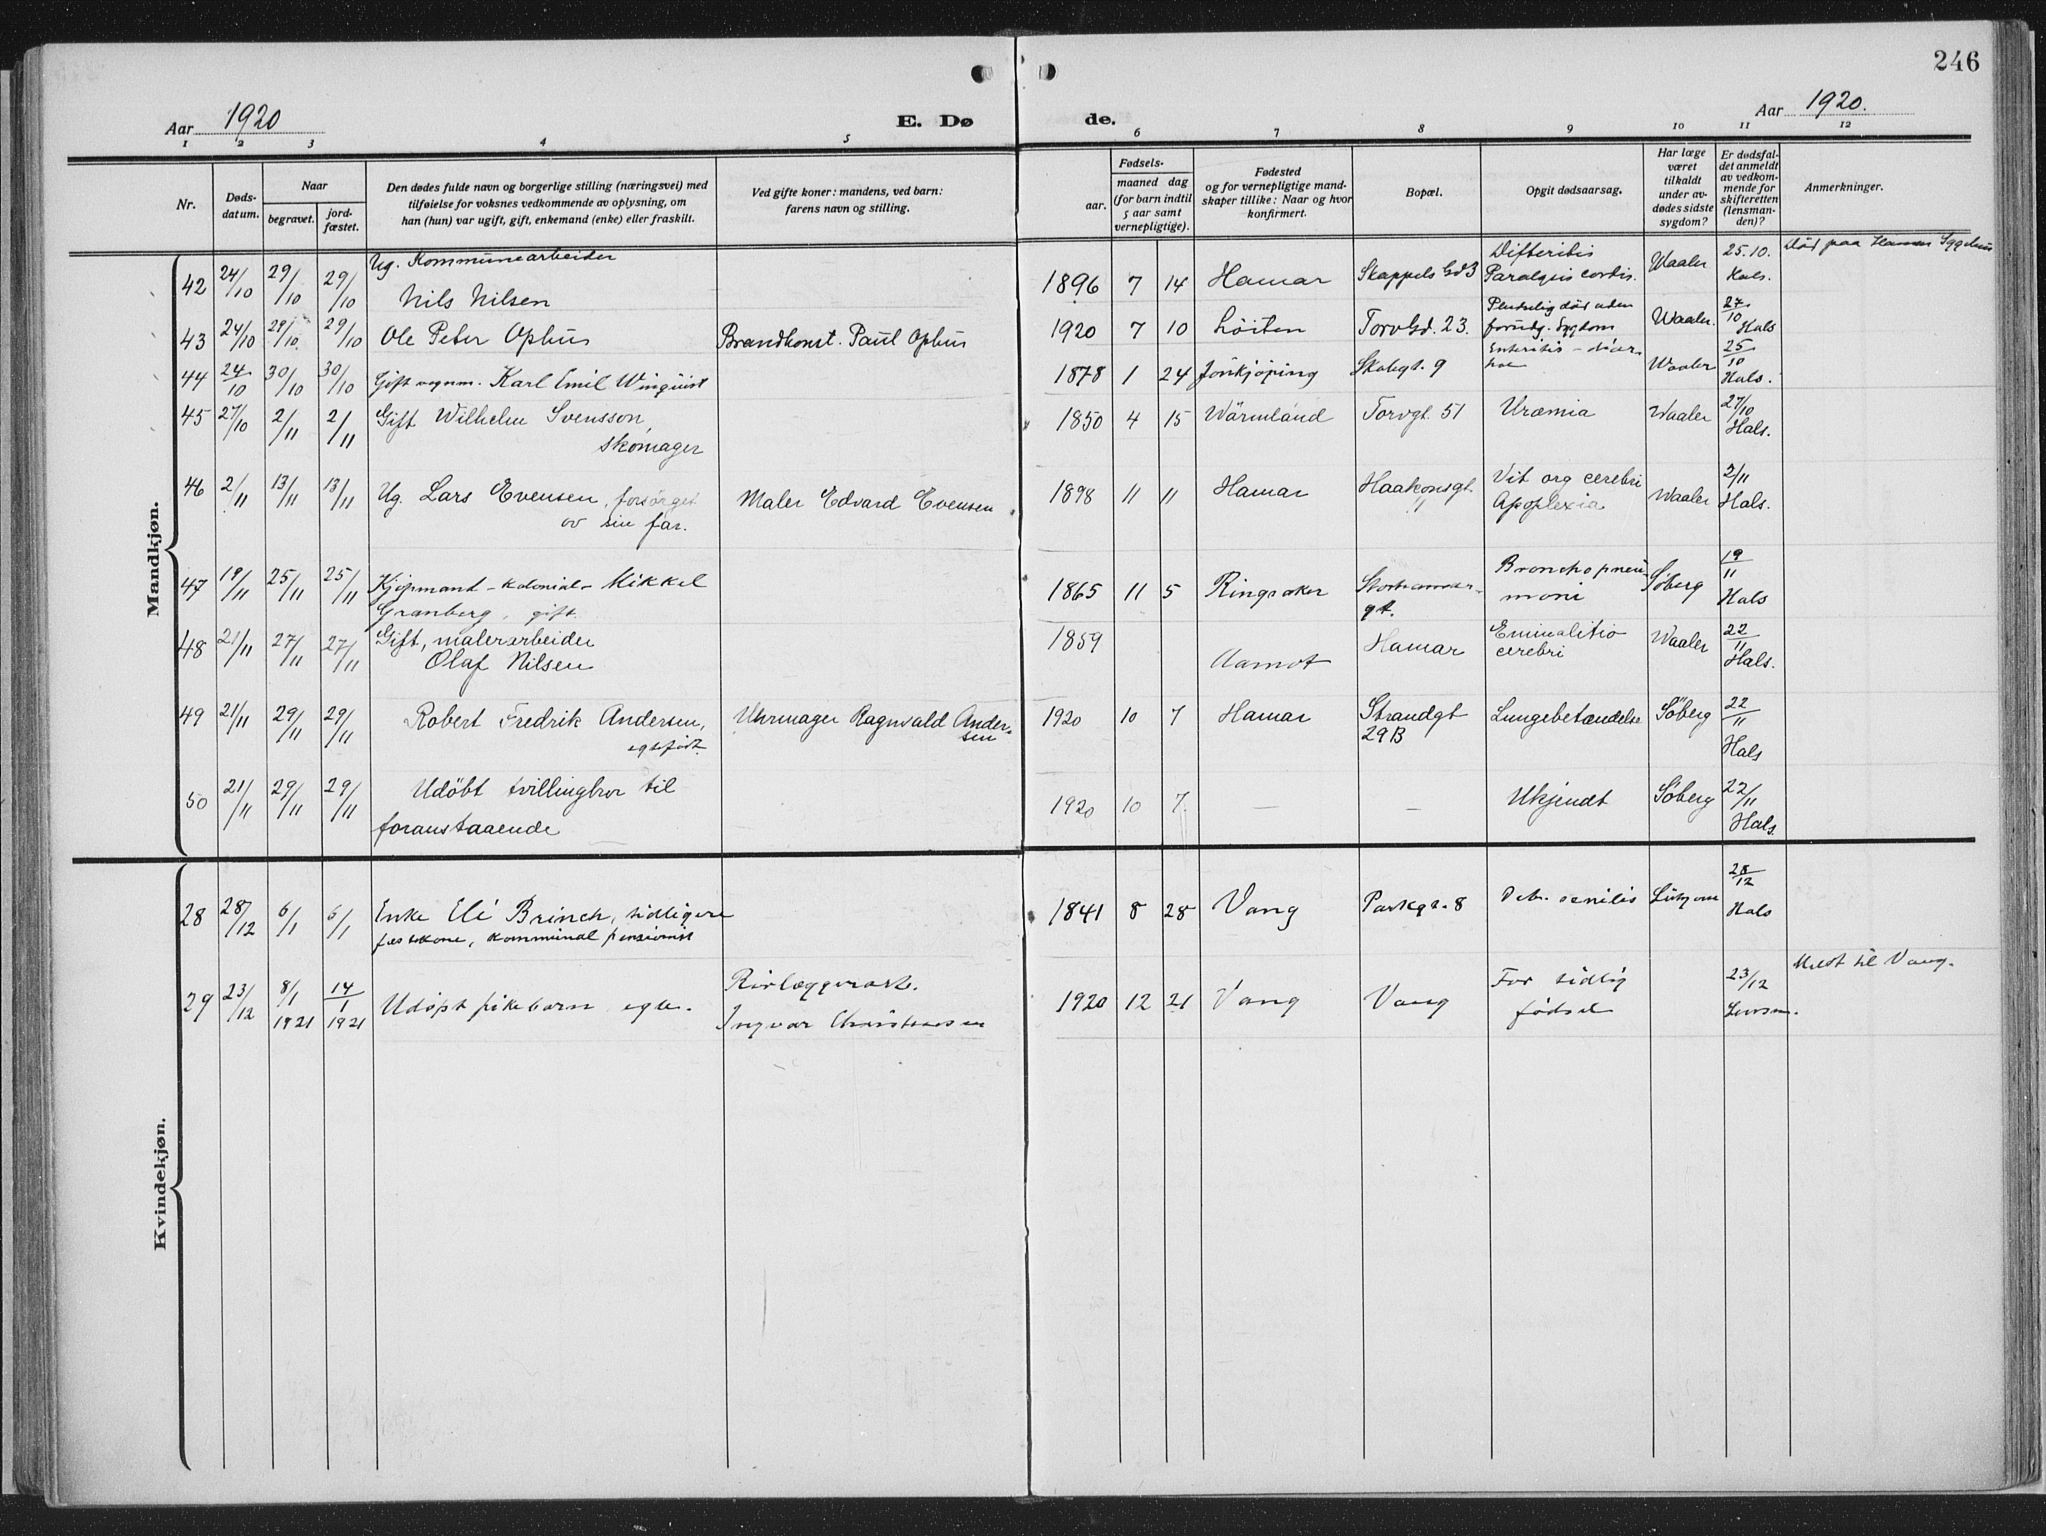 246
Aar 1920
E. Dø
de.
Aar 1920.
1 2 3 4 5 6 7 8 9 10 11 12
Nr.
Døds-
datum.
Naar
begravet.
jord-
fæstet.
Den dødes fulde navn og borgerlige stilling (næringsvei) med
tilføielse for voksnes vedkommende av oplysning, om
han (hun) var ugift, gift, enkemand (enke) eller fraskilt.
Ved gifte koner: mandens, ved barn:
farens navn og stilling.
Fødsels-
aar.
maaned dag
(for barn indtil
5 aar samt
vernepligtige).
Fødested
og for vernepligtige mand-
skaper tillike: Naar og hvor
konfirmert.
Bopæl.
Opgit dødsaarsag.
Har læge
været
tilkaldt
under av-
dødes sidste
sygdom?
Er dødsfal-
det anmeldt
av vedkom-
mende for
skifteretten
(lensman-
den)?
Anmerkninger.
Mandkjøn.
42 24/10 29/10 29/10 Ug. Kommunearbeider
Nils Nilsen
1896 7 14 Hamar Skappels Gd 3 Difteritis
Paralysis cordis. Waaler 25.10.
Hals.
Död paa Hamar Sygehus
43 24/10 29/10 29/10 Ole Peter Ophus Brandkonst. Paul Ophus
1920 7 10 Löiten Torvgd. 23. Pludselig död uden
forudg. Sygdom Waaler. 27/10
Hals
44 24/10 30/10 30/10 Gift vognm. Karl Emil Winquist
1878 1 24 Jönkjöping Skolegt. 9 Enteritis - diar-
hoe Waaler 25/10
Hals.
45 27/10 2/11 2/11 Gift Wilhelm Svensson,
skomager
1850 4 15 Wärmland Torvgt. 51 Uræmia Waaler 27/10
Hals.
46 2/11 13/11 13/11 Ug. Lars Evensen, forsørget
av sin far.
Maler Edvard Evensen
1898 11 11 Hamar Haakonsgt.
11
Vit org cerebri
Apoplexia Waaler 2/11
Hals.
47 19/11 25/11 25/11 Kjøpmand - kolonial - Mikkel
Granberg, gift.
1865 11 5 Ringsaker Storhamar-
gt.
Bronchopneu-
moni Söberg 19/11
Hals
48 21/11 27/11 27/11 Gift, malerarbeider
Olaf Nilsen
1859 Aamot Hamar
cerebri Waaler 22/11
Hals.
49 21/11 29/11 29/11 Robert Fredrik Andersen,
egtefödt.
Uhrmager Ragnvald Ander-
sen
1920 10 7 Hamar Strandgt
29B
Lungebetændelse Söberg 22/11
Hals
50 21/11 29/11 29/11 Udöbt tvillingbror til
foranstaaende
1920 10 7. — — Ukjendt Söberg 22/11
Hals.
Kvindekjøn.
28 28/12 6/1 6/1 Enke Eli Brinch, tidligere
fæstekone, kommunal pensionist
1841 8 28 Vang Parkgt. 8 Deb. senilis 28/12
Hals
29 23/12 8/1 1921 14/1 1921 Udøpt pikebarn egte.
Rørlæggerarb.
Ingvar Christiansen
1920 12 21 Vang Vang For tidlig
födsel
23/12
Lensm.
Meldt til Vang.